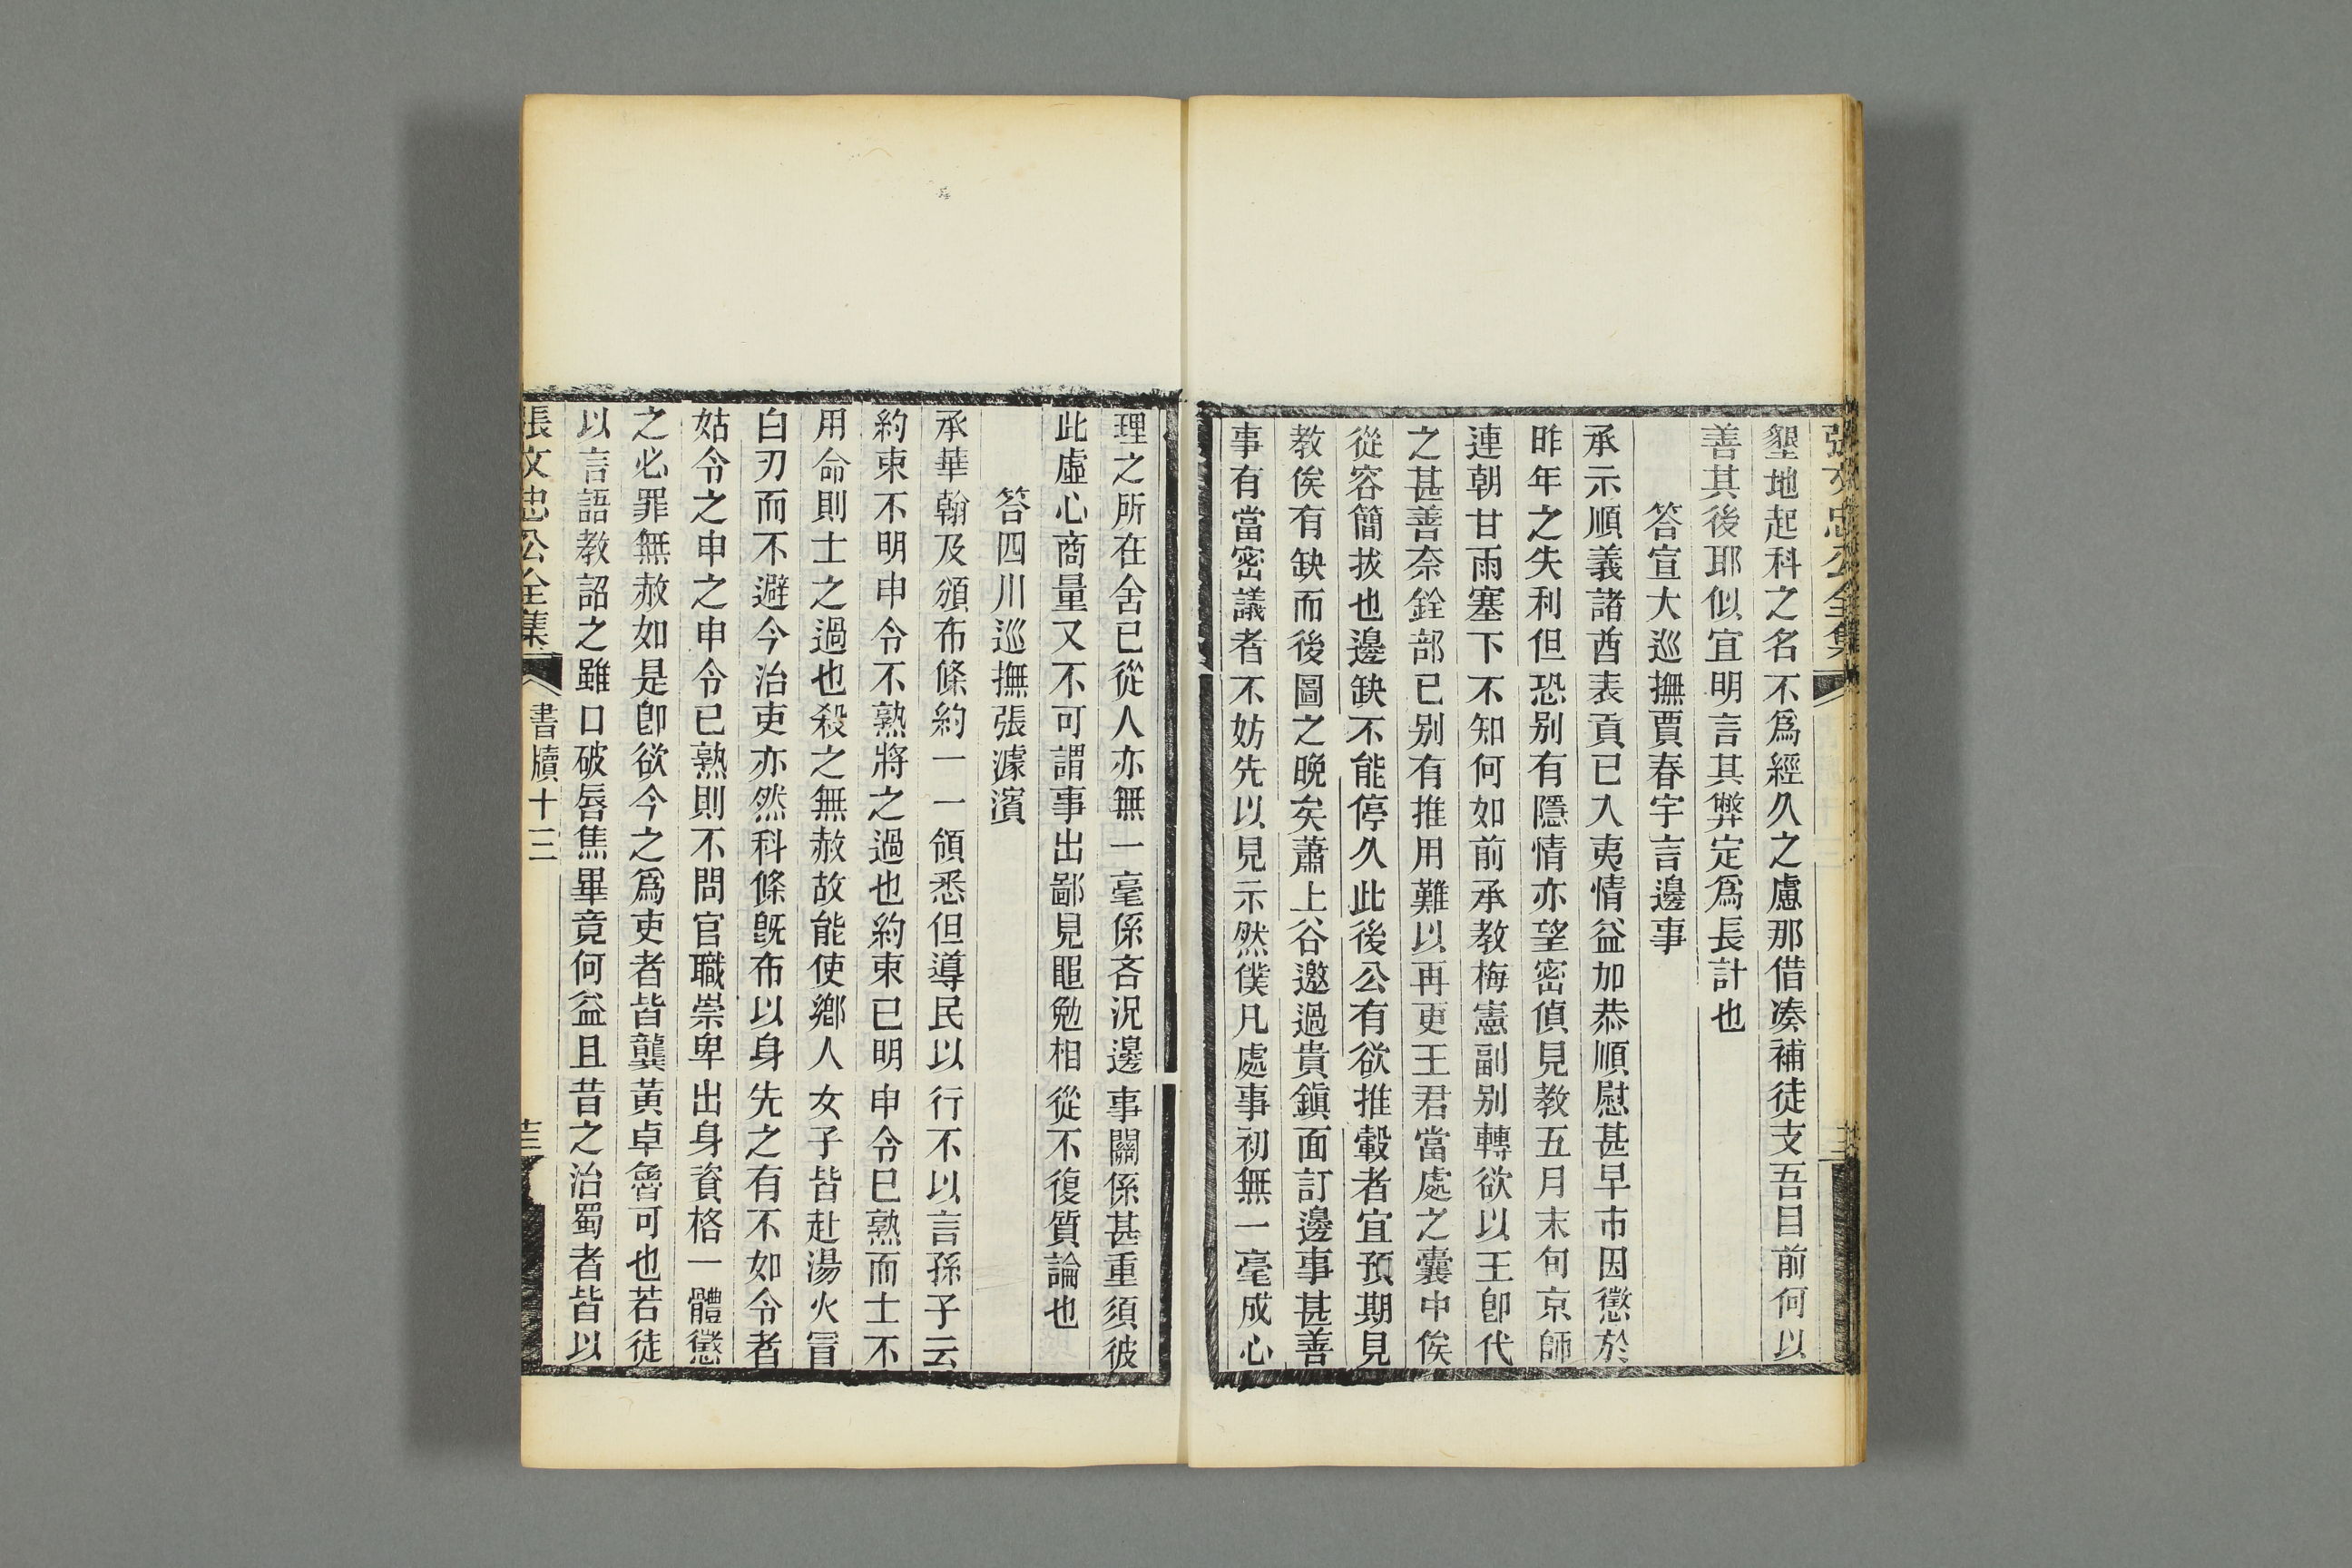 張文忠公全集
墾地起科之名不爲經久之慮那借凑補徒支吾目前何以
善其後耶似宜明言其弊定爲長計也
答宣大巡撫賈春宇言邊事
承示順義諸酋表貢已入夷情益加恭順慰甚早市因懲於
昨年之失利但恐别有隱情亦望密偵見教五月末旬京師
連朝甘雨塞下不知何如前承教梅憲副别轉欲以王卽代
之甚善奈銓部已别有推用難以再更王君當處之囊中俟
從容簡拔也邊缺不能停久此後公有欲推轂者宜預期見
教俟有缺而後圖之晚矣蕭上谷邀過貴鎭面訂邊事甚善
事有當密議者不妨先以見示然僕凡處事初無一毫成心
理之所在舍已從人亦無一毫係吝況邊事關係甚重須彼
此虛心商量又不可謂事出鄙見黽勉相從不復質論也
答四川巡撫張濾濱
承華翰及頒布條約一一領悉但導民以行不以言孫子云
約束不明申令不熟將之過也約束已明申令已熟而士不
用命則士之過也殺之無赦故能使鄉人女子皆赴湯火冒
白刃而不避今治吏亦然科條旣布以身先之有不如令者
姑令之申之申令已熟則不問官職崇卑出身資格一體懲
之必罪無赦如是卽欲今之爲吏者皆龔黃卓魯可也若徒
以言語教詔之雖口破唇焦畢竟何益且昔之治蜀者皆以
張文忠公全集
書牘十三